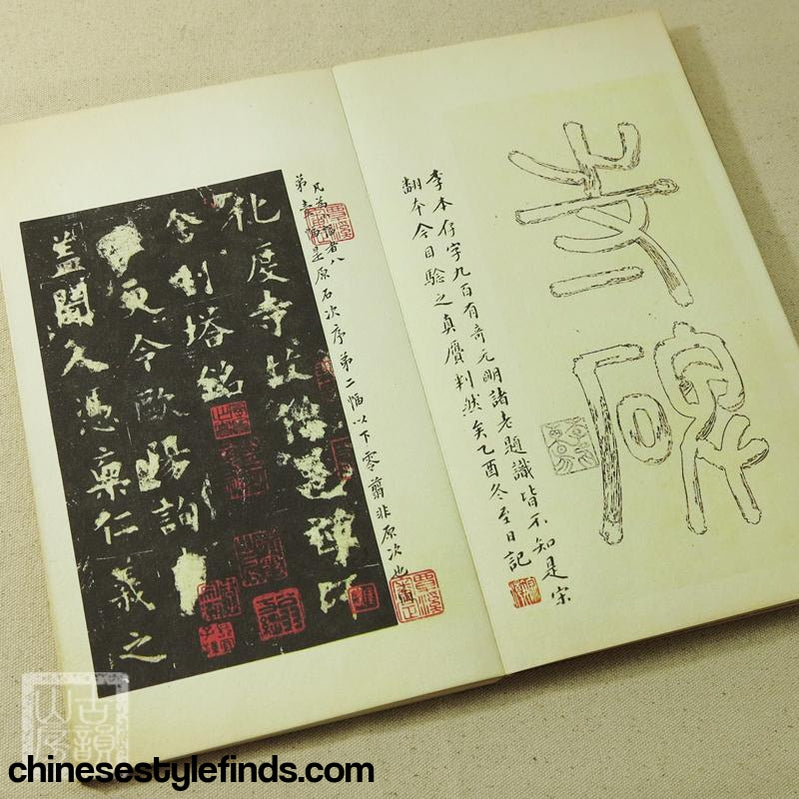 寺碑
李本存字九百有奇元明諸老題識皆不知是宋
翻本今目驗之真贋判然矣乙酉冬至日記
是原石次序第二幅以下零翦非原次也
化度寺故僧邕禪師
舍利塔銘
更令歐陽詢
蓋聞人憑稟仁義之
古韻山房
chinesestylefinds.com